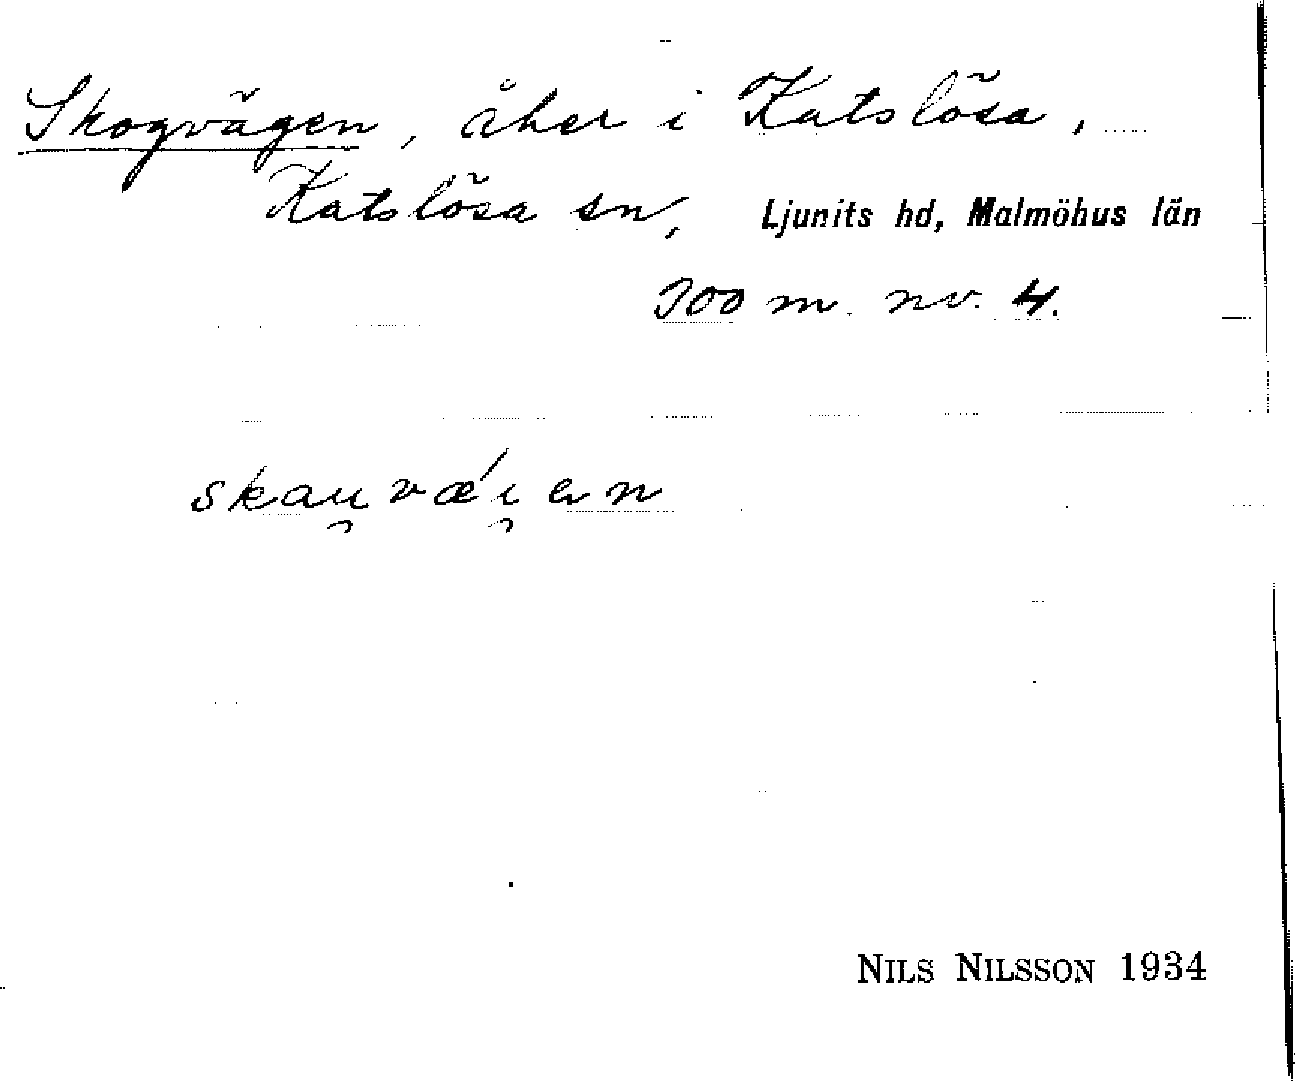 Skogvägen, åker i Katslösa,
Katslösa sn, Ljunits hd, Malmöhus län
300 m. nv. 4.
skau̯vǽi̯ən
NILS NILSSON 1934